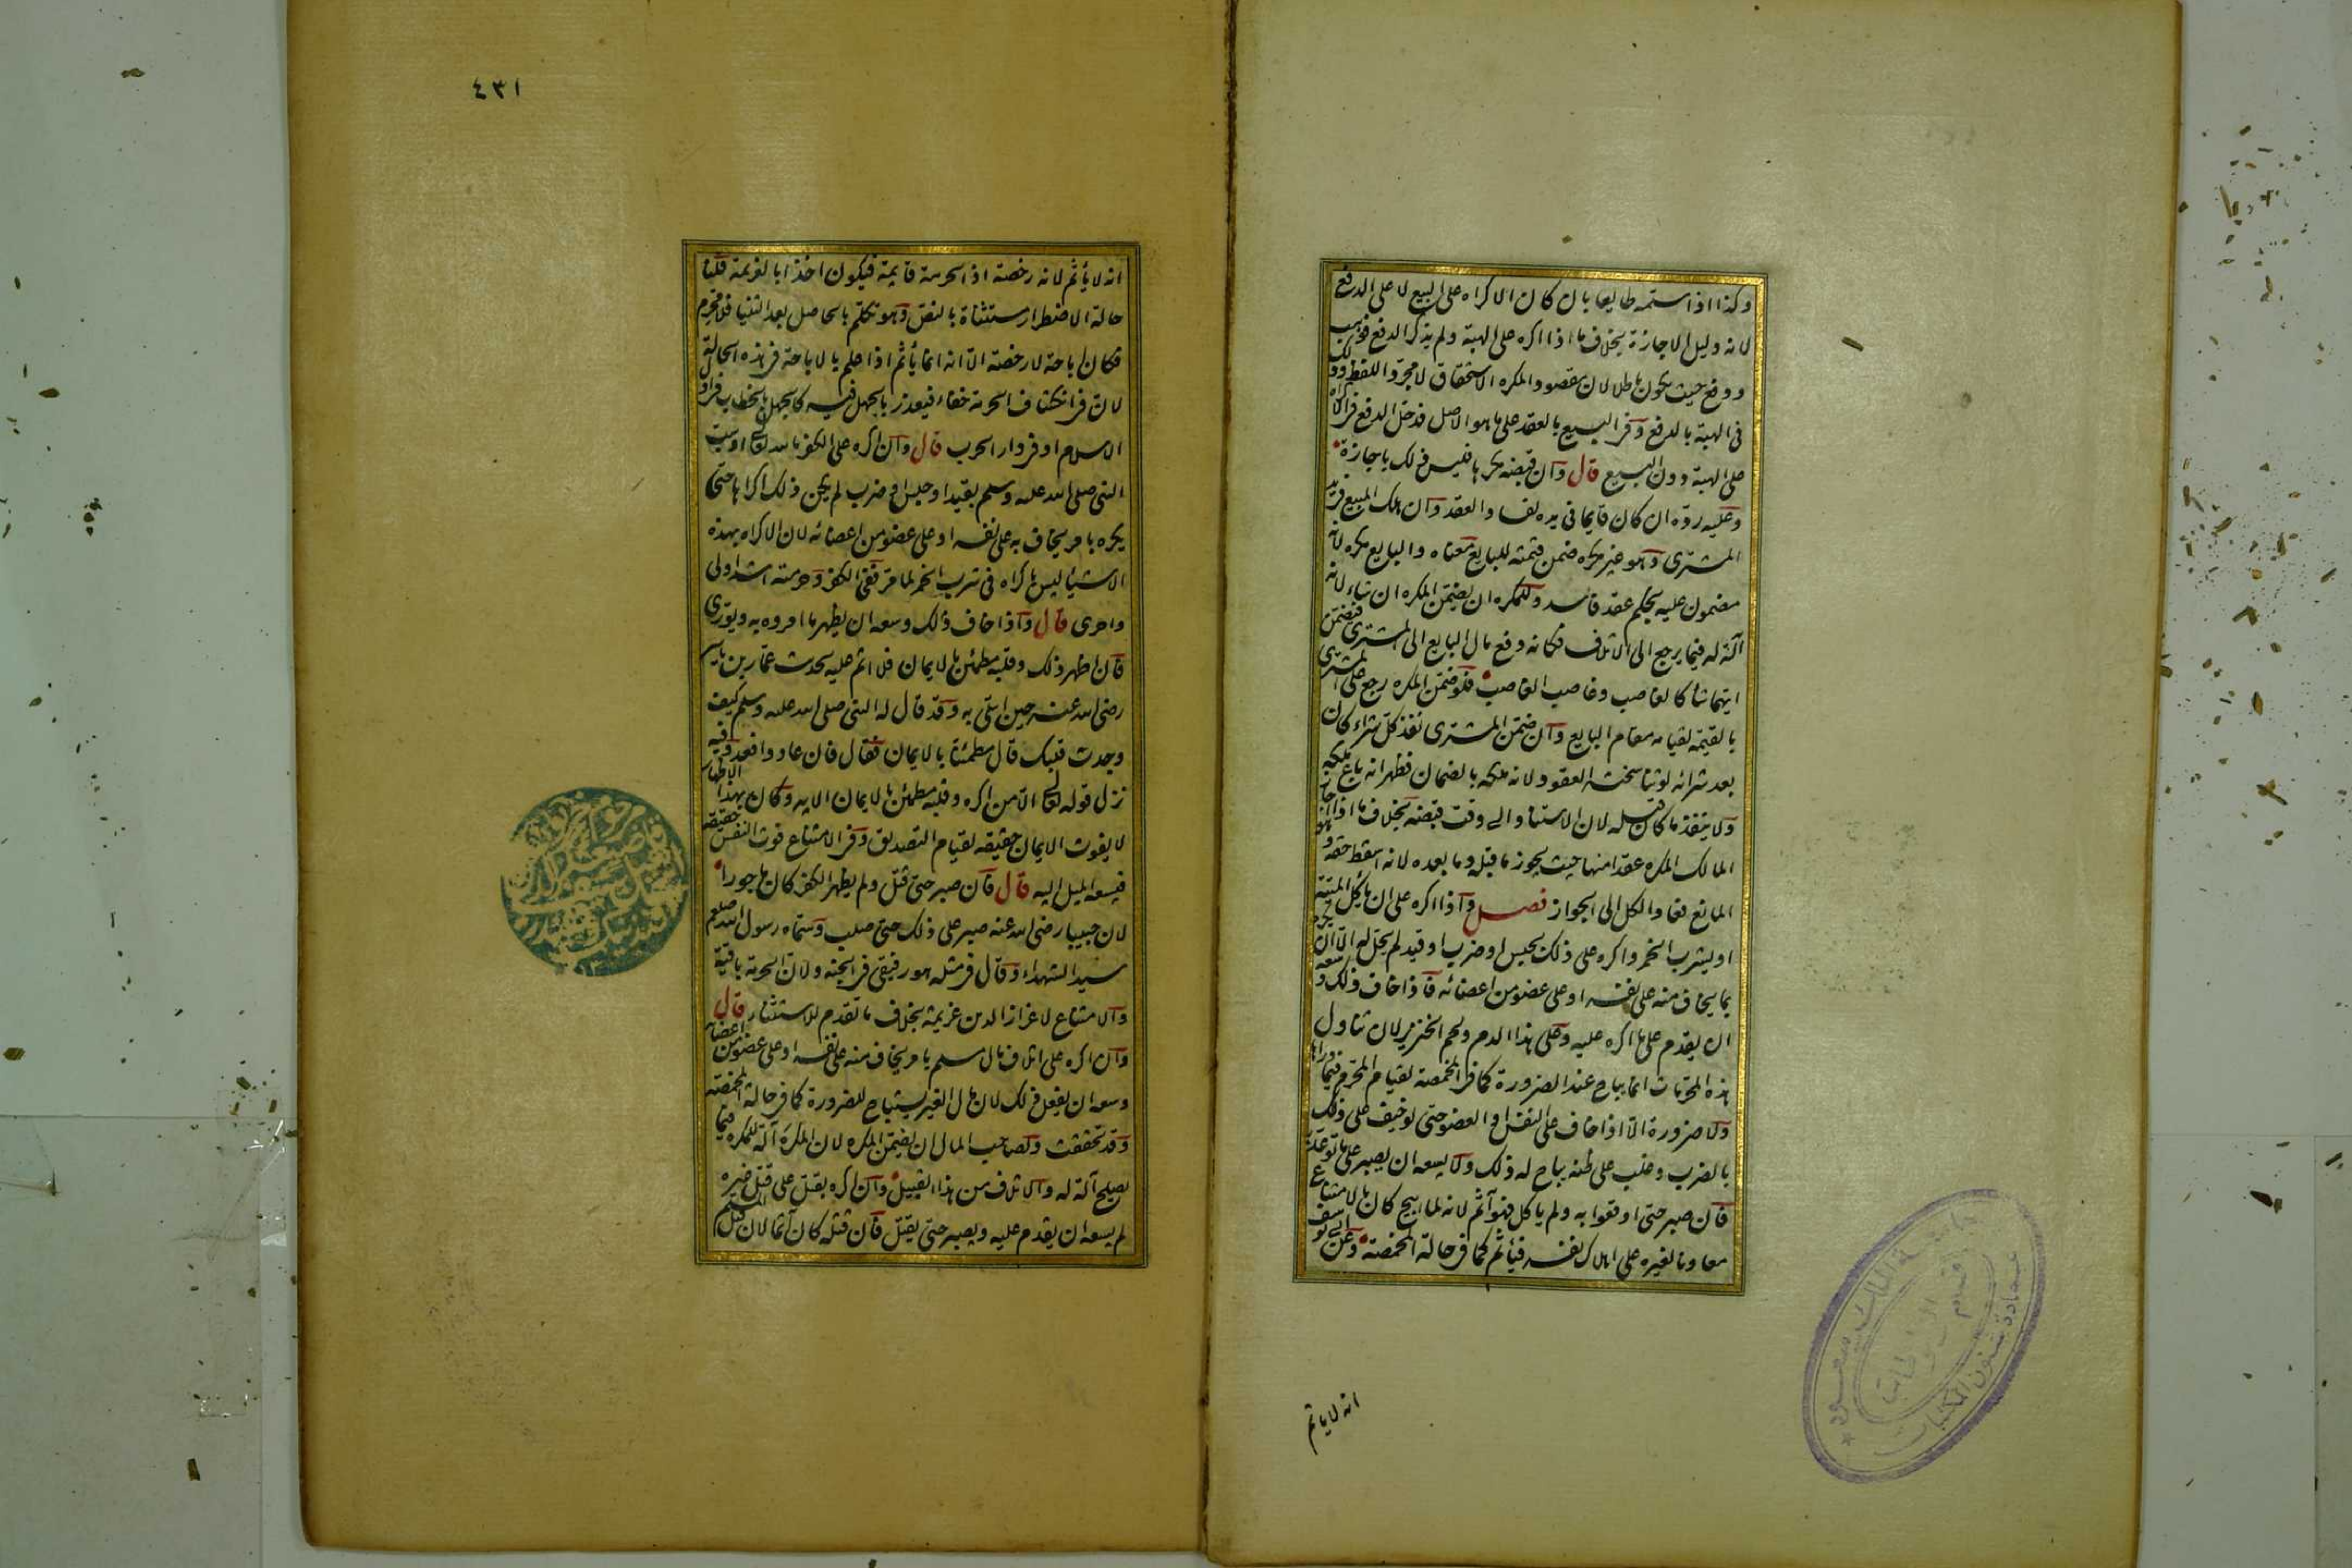 وكذا اذا سلمه طايعا بان كان الاكراه على البيع لا على الدفع
لانه دليل الاجازة بخلاف ما اذا اكره على الهبة ولم يذكر الدفع فوهب
ودفع حيث يكون باطلا لان مقصود المكره الاستحقاق لا مجرد اللفظ وذلك
فى الهبة بالدفع وفى البيع بالعقد على ما هو الاصل فدخل الدفع فى الاكراه
على الهبة دون البيع قال وان قبضه مكرها فليس ذلك باجازة
وعليه رده ان كان قايما فى يده لفساد العقد وان هلك المبيع فى يد
المشترى وهو غير مكره ضمن قيمته للبايع معناه والبايع مكره لانه
مضمون عليه بحكم عقد فاسد وللمكره ان يضمن المكره ان شاء لانه
آلة له فيما يرجع الى الاتلاف فكانه دفع مال البايع الى المشترى فيضمن
ايهما شا كالغاصب وغاصب الغاصب فلو ضمن المكره رجع على المشترى
بالقيمة لقيامه مقام البايع وان ضمن المشترى نفذ كل شراء كان
بعد شرائه لو تناسخت العقود لانه ملكه بالضمان فظهر انه باع ملكه
ولا ينفذ ما كان قبله لان الاستناد الى وقت قبضه بخلاف ما اذا اجاز
المالك المكره عقدا منها حيث يجوز ما قبله وما بعده لانه اسقط حقه وهو
المانع فعاد الكل الى الجواز فصل واذا اكره على ان ياكل الميتة
او يشرب الخمر واكره على ذلك بحبس او ضرب او قيد لم يحل له الا ان يكره
بما يخاف منه على نفسه او على عضو من اعضائه فاذا خاف ذلك وسعه
ان يقدم على ما اكره عليه وعلى هذا الدم ولحم الخنزير لان تناول
هذه المحرمات انما يباح عند الضرورة كما فى المخمصة لقيام المحرم فيما وراها
ولا ضرورة الا اذا خاف على النفس او العضو حتى لو خيف على ذلك
بالضرب وغلب على ظنه يباح له ذلك ولا يسعه ان يصبر على ما توعد به
فان صبر حتى اوقعوا به ولم ياكل فهو آثم لانه لما ابيح كان بالامتناع
معاونا لغيره على اهلاك نفسه فيأثم كما فى حالة المخمصة وعن ابى يوسف
انه لا ياثم
٤٣١
انه لا يأثم لانه رخصة اذ الحرمة قايمة فيكون اخذا بالعزيمة قلنا
حالة الاضطرار مستثناة بالنص وهو تكلم بالحاصل بعد الثنيا فلا محرم
فكان اباحة لا رخصة الا انه انما يأثم اذا علم بالاباحة فى هذه الحالة
لان فى انكشاف الحرمة خفاء فيعذر بالجهل فيه كالجهل بالخطاب فى اول
الاسلام او فى دار الحرب قال وان اكره على الكفر بالله تعالى او سب
النبى صلى الله عليه وسلم بقيد او حبس او ضرب لم يكن ذلك اكراها حتى
يكره بامر يخاف به على نفسه او على عضو من اعضائه لان الاكراه بهذه
الاشيا ليس باكراه فى شرب الخمر لما مر ففى الكفر وحرمته اشد اولى
واحرى قال واذا خاف ذلك وسعه ان يظهر ما امروه به ويورى
فان اظهر ذلك وقلبه مطمئن بالايمان فلا اثم عليه لحديث عمار بن ياسر
رضى الله عنه حين ابتلى به وقد قال له النبى صلى الله عليه وسلم كيف
وجدت قلبك قال مطمئنا بالايمان فقال فان عادوا فعد وفيه
نزل قوله تعالى الا من اكره وقلبه مطمئن بالايمان الايه ولان بهذا الاظهار
لا يفوت الايمان حقيقة لقيام التصديق وفى الامتناع فوت النفس حقيقة
فيسعه الميل اليه قال فان صبر حتى قتل ولم يظهر الكفر كان ماجورا
لان خبيبا رضى الله عنه صبر على ذلك حتى صلب وسماه رسول الله صلعم
سيد الشهداء وقال فى مثله هو رفيقى فى الجنة ولان الحرمة باقية
والامتناع لاعزاز الدين عزيمة بخلاف ما تقدم للاستثناء قال
وان اكره على اتلاف مال مسلم بامر يخاف منه على نفسه او على عضو من اعضائه
وسعه ان يفعل ذلك لان مال الغير يستباح للضرورة كما فى حالة المخمصة
وقد تحققت ولصاحب المال ان يضمن المكره لان المكره آلة للمكره فيما
يصلح آلة له والاتلاف من هذا القبيل وان اكره بقتل على قتل غيره
لم يسعه ان يقدم عليه ويصبر حتى يقتل فان قتله كان آثما لان قتل المسلم
جامعة الملك سعود
عمادة شئون المكتبات
قسم المخطوطات